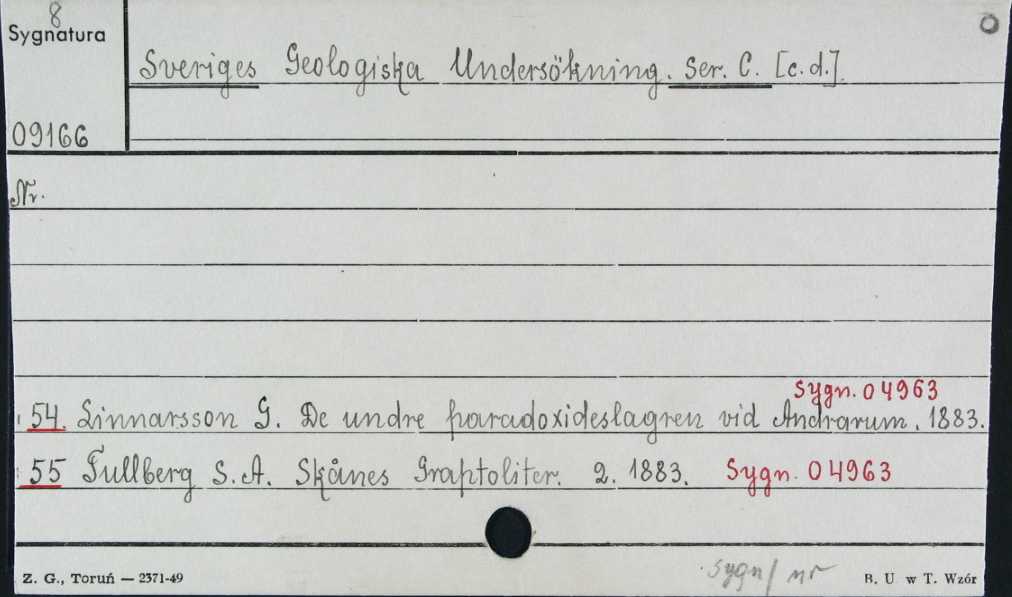 8
Sygnatura
Sveriges Geologiska Undersökning. Ser. C. [c.d.].
09166
Nr.
Sygn. 04963
54. Linnarsson G. De undre paradoxideslagren vid Andrarum. 1883.
55 Tullberg S. A. Skånes Graptoliter. 2. 1883. Sygn. 04963
sygn/nr
Z. G., Toruń — 2371-49
B. U. w T. Wzór